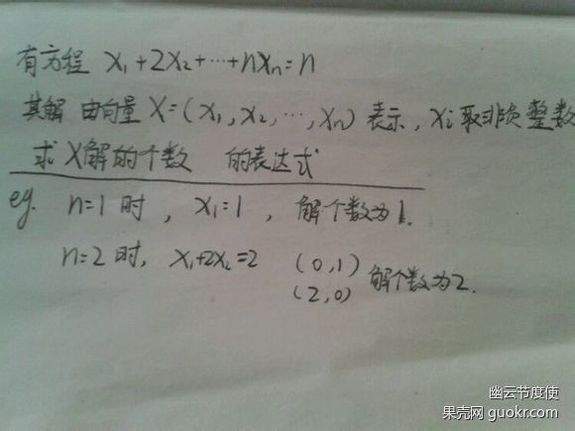 有方程 x₁+2x₂+…+nxₙ=n
其解 由向量 X=(x₁,x₂,…,xₙ) 表示, xᵢ取非负整数
求X解的个数 的表达式
eg. n=1时, x₁=1, 解个数为1.
n=2时, x₁+2x₂=2 (0,1) 解个数为2.
(2,0)
幽云节度使
果壳网 guokr.com